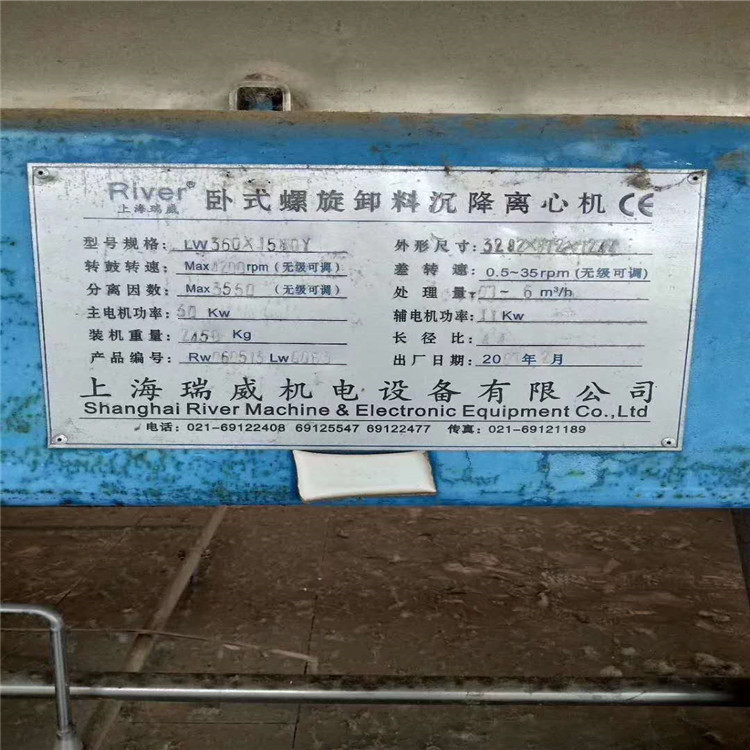 River® 卧式螺旋卸料沉降离心机 CE
上海瑞威
型号规格: LW360X1580Y 外形尺寸:
转鼓转速: Max4200rpm (无级可调) 差转速: 0.5~35rpm (无级可调)
分离因数: Max3550 (无级可调) 处理量: ~6 m³/h
主电机功率: 30 Kw 辅电机功率: 11Kw
装机重量: 2450 Kg 长径比:
产品编号: Rw060513 Lw 出厂日期: 2007年2月
上海瑞威机电设备有限公司
Shanghai River Machine & Electronic Equipment Co.,Ltd
电话: 021-69122408 69125547 69122477 传真: 021-69121189